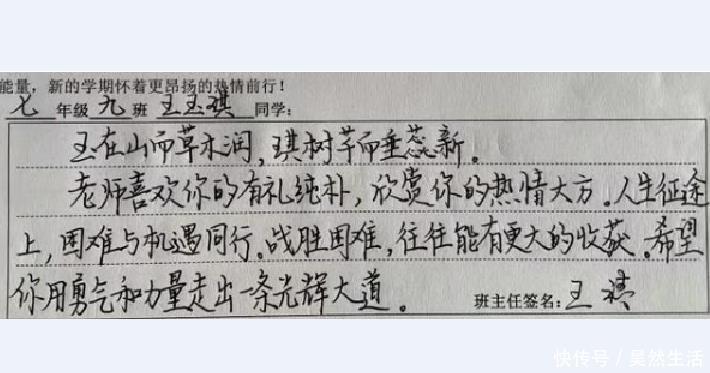 能量，新的学期怀着更昂扬的热情前行！
七 年级 九 班 王玉琪 同学：
玉在山而草木润，琪树芊而垂蕊新。
老师喜欢你的有礼纯朴，欣赏你的热情大方。人生征途
上，困难与机遇同行。战胜困难，往往能有更大的收获。希望
你用勇气和力量走出一条光辉大道。 班主任签名：王
快传号／昊然生活